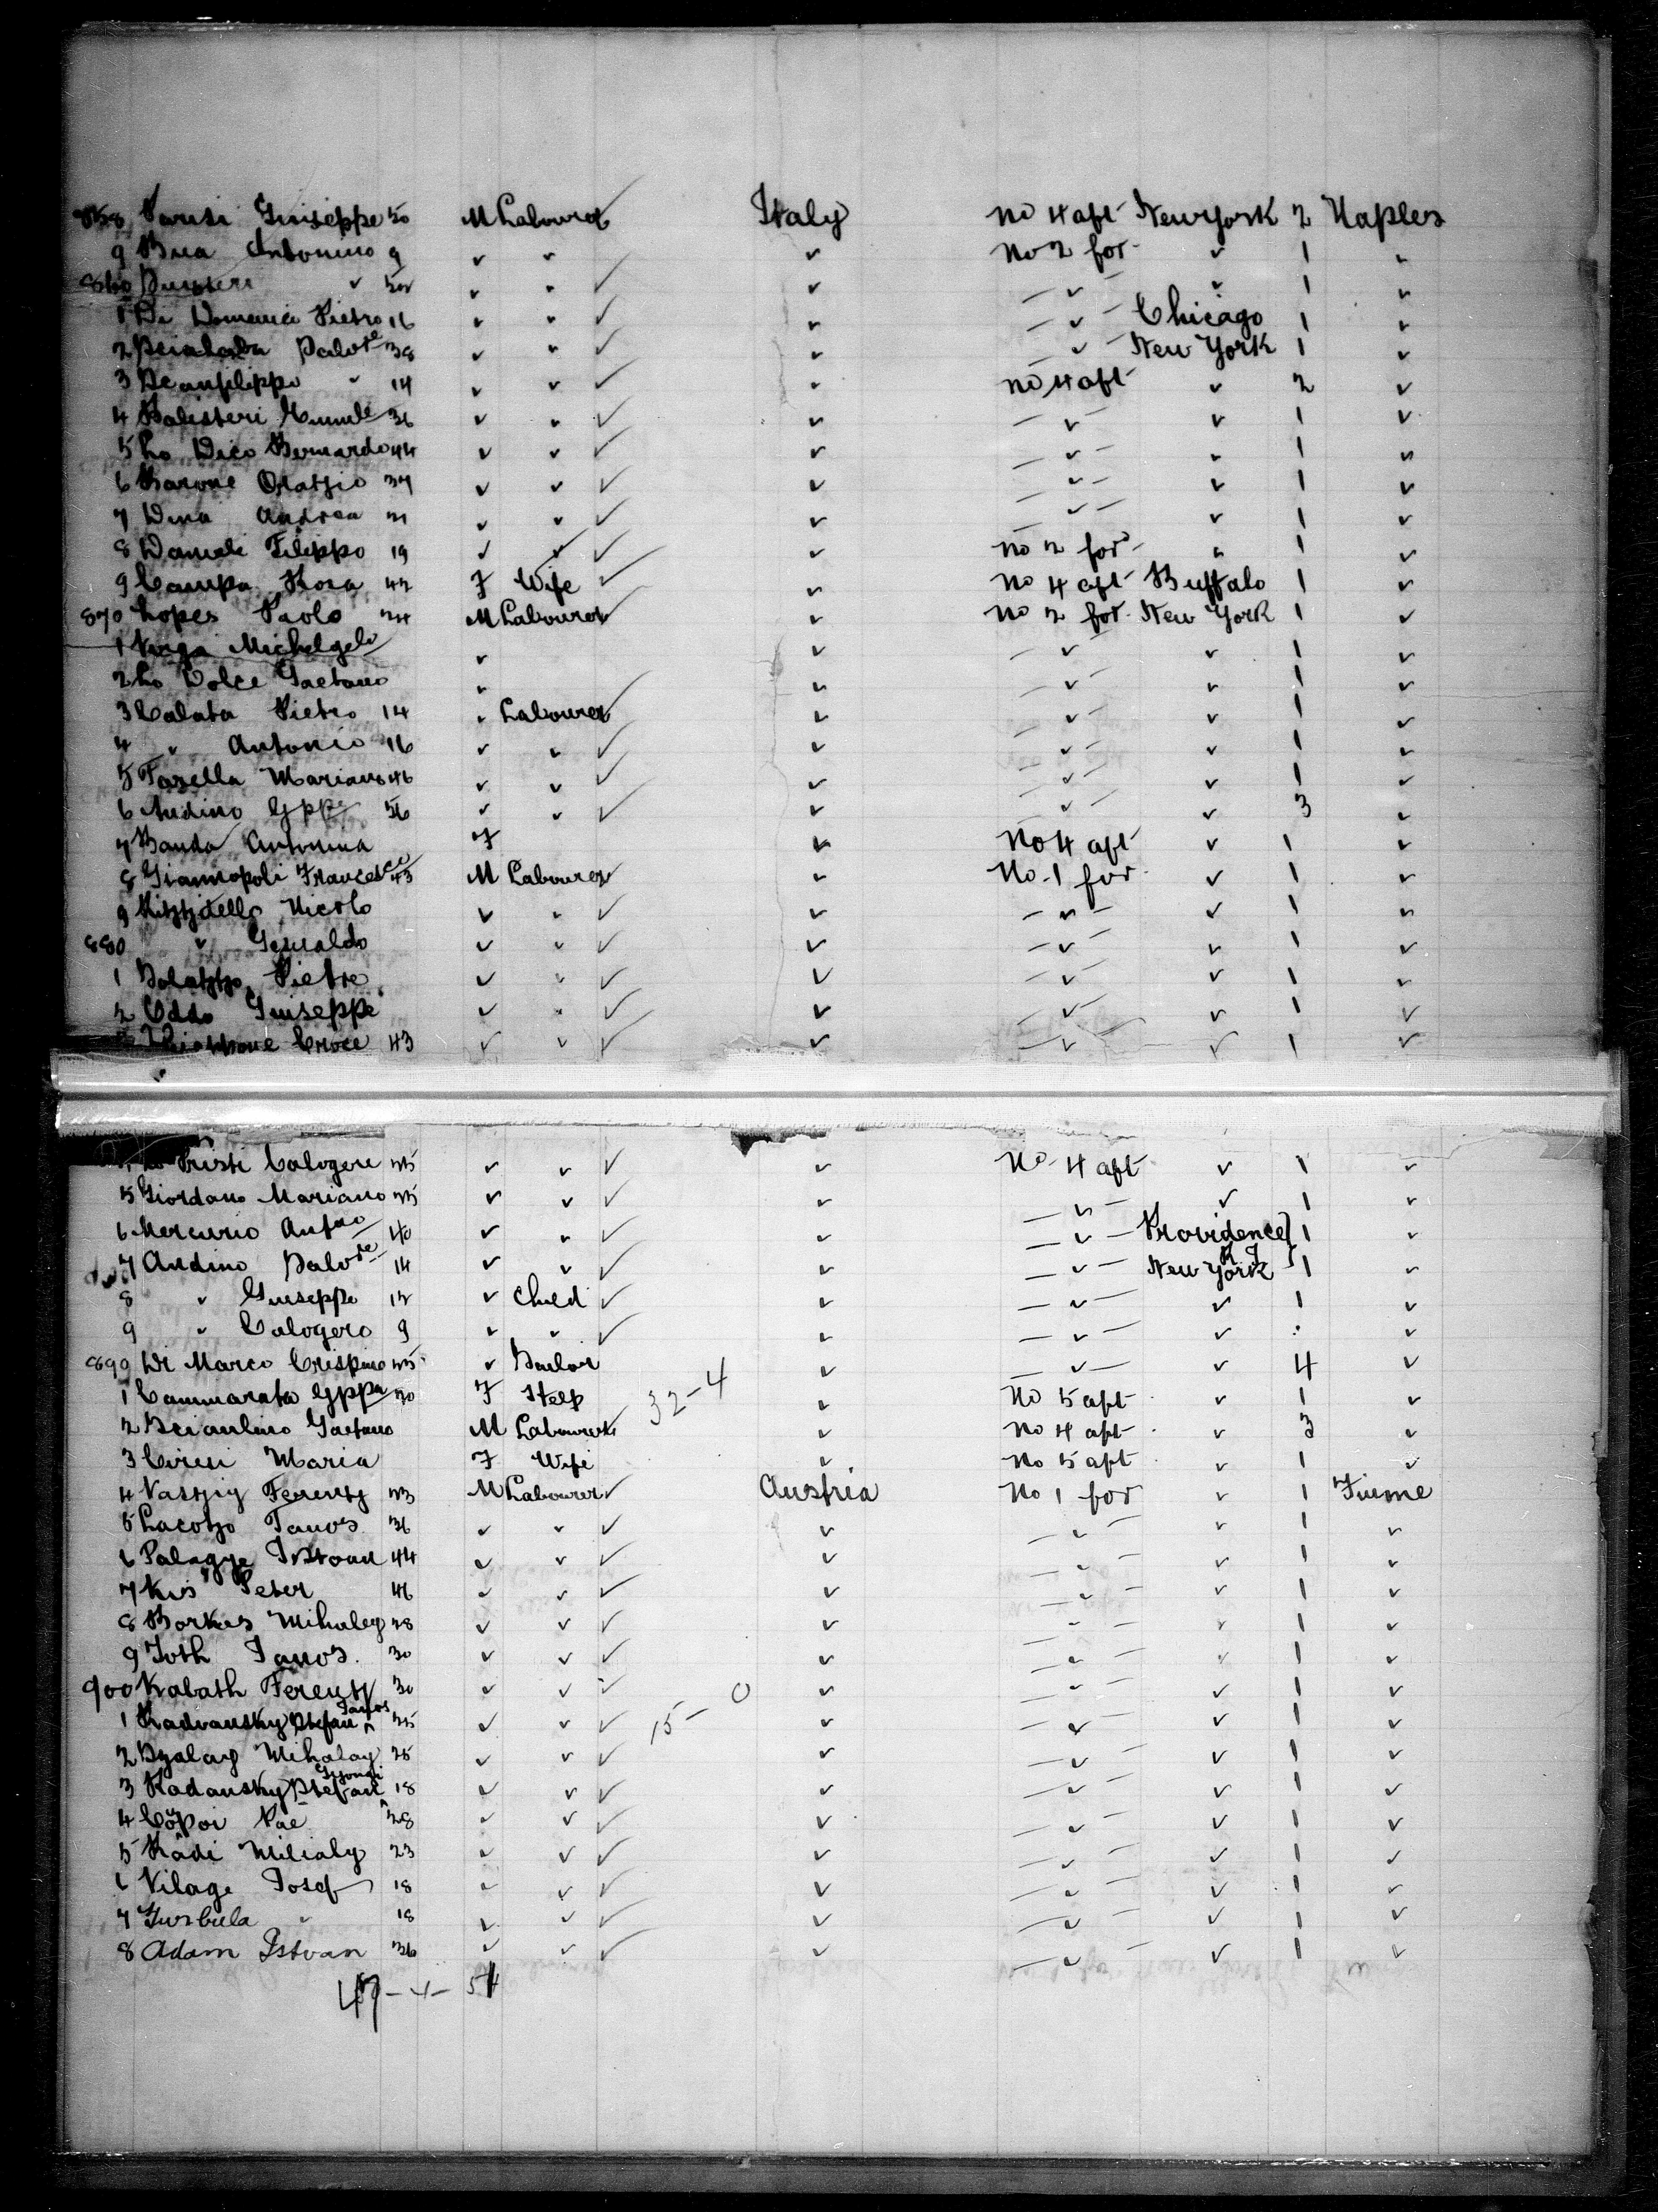 858 Giuseppe 50 M Labourer Italy No 4 aft New York 2 Naples
9 Bua Antonino 9 " " " No 2 for " 1 "
860 " " " " " " 1 "
1 Di Domenici Pietro 16 " " " " Chicago 1 "
2 Salvre 38 " " " " New York 1 "
3 " 14 " " " No 4 aft " 2 "
4 Balisteri 36 " " " " " 1 "
5 Lo Dico Bernardo 44 " " " " " 1 "
6 Barone Oratzio 37 " " " " " 1 "
7 Andrea 21 " " " " " 1 "
8 Filippo 19 " " " No 2 for " 1 "
9 Campa Rosa 42 F Wife " No 4 aft Buffalo 1 "
870 Lopes Paolo 24 M Labourer " No 2 for New York 1 "
1 Virga Michelgelo " " " " 1 "
2 Lo Dolce Gaetano " " " " 1 "
3 Calata Pietro 14 " Labourer " " " 1 "
4 " Antonio 16 " " " " " 1 "
5 Fasella Mariano 46 " " " " " 1 "
6 Andino Gppe 36 " " " " " 3 "
7 Banda Antonina F " No 4 aft " 1 "
8 Giannopoli Francesco 43 M Labourer " No 1 for " 1 "
9 Ritzzitello Nicolo " " " " " 1 "
880 " Gesualdo " " " " " 1 "
1 Pietro " " " " " 1 "
2 Oddo Giuseppe " " " " " 1 "
Croce 43 " " " " " 1 "
Lo Presti Calogero 25 " " " No 4 aft " 1 "
5 Giordano Mariano 25 " " " " " 1 "
6 Mercurio Antno 40 " " " " Providence R I 1 "
7 Andino Salvre 14 " " " " New York 1 "
8 " Giuseppe 12 " Child " " " 1 "
9 " Calogero 9 " " " " " "
890 Di Marco Crispino 25 " Sailor " " " 4 "
1 Cammarata Gppa 20 F Help 32-4 " No 5 aft " 1 "
2 Gaetano M Labourer " No 4 aft " 3 "
3 Maria F Wife " No 5 aft " 1 "
4 Ferentz 23 M Labourer Austria No 1 for " 1 Fiume
5 Janos 36 " " " " " 1 "
6 Palagye Istvan 44 " " " " " 1 "
7 Kis Peter 46 " " " " " 1 "
8 Borkas Mihaley 28 " " " " " 1 "
9 Toth Janos. 30 " " " " " 1 "
900 Kabath Ferentz 30 " " " " " 1 "
1 Radvansky Stefan ^ Janos 25 " " 15-0 " " " 1 "
2 Mihalay 25 " " " " " 1 "
3 Radansky Stefan ^ 18 " " " " " 1 "
4 28 " " " " " 1 "
5 Rádi Milialy 23 " " " " " 1 "
6 Vilage Josef 18 " " " " " 1 "
7 " 18 " " " " " 1 "
8 Adam Istvan 36 " " " " " 1 "
47-4-51